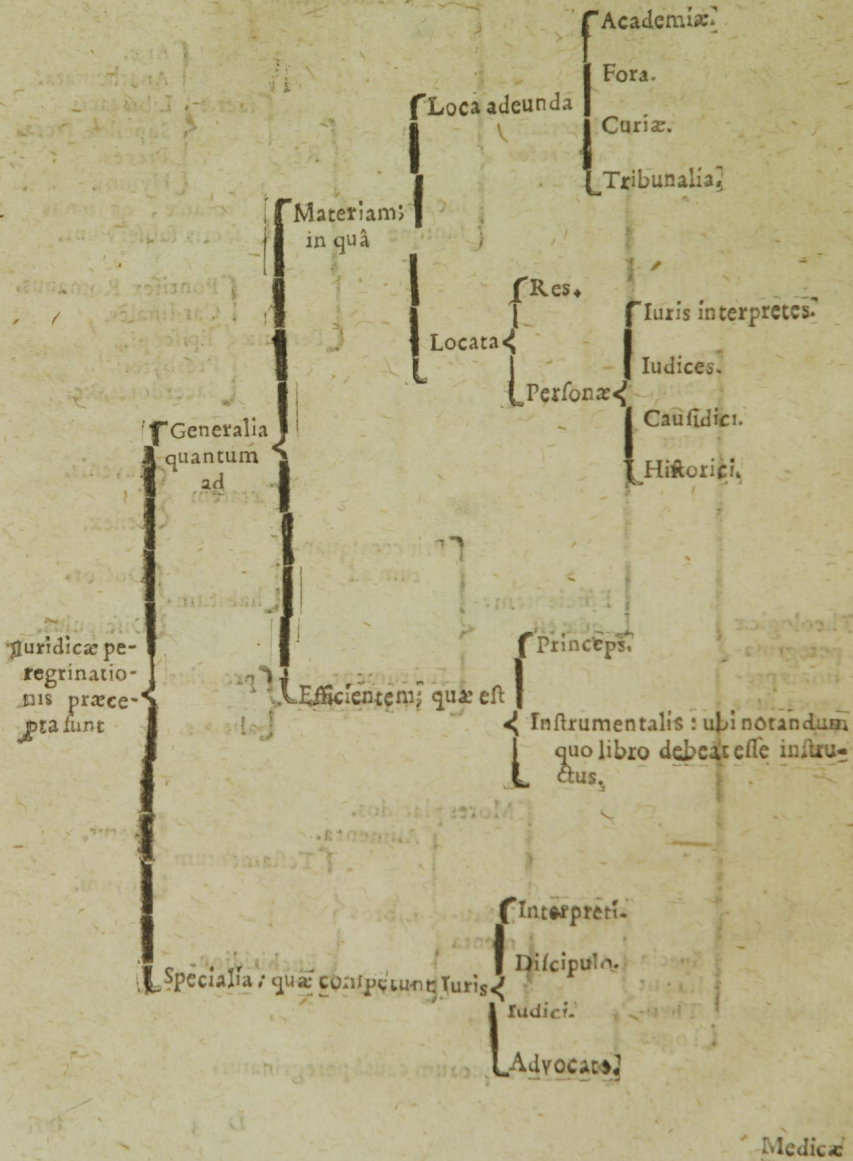 Iuridicæ pe-
regrinatio-
nis præce-
pta sunt
Generalia
quantum
ad
Materiam;
in quâ
Loca adeunda
Academiæ.
Fora.
Curiæ.
Tribunalia.
Locata
Res.
Perſonæ
Iuris interpretes.
Iudices.
Cauſidici.
Hiſtorici.
Efficientem; quæ eſt
Princeps.
Inſtrumentalis: ubi notandum
quo libro debeat eſſe inſtru-
ctus.
Specialia: quæ competunt Iuris
Interpreti.
Diſcipulo.
Iudici.
Advocato.
Medicæ